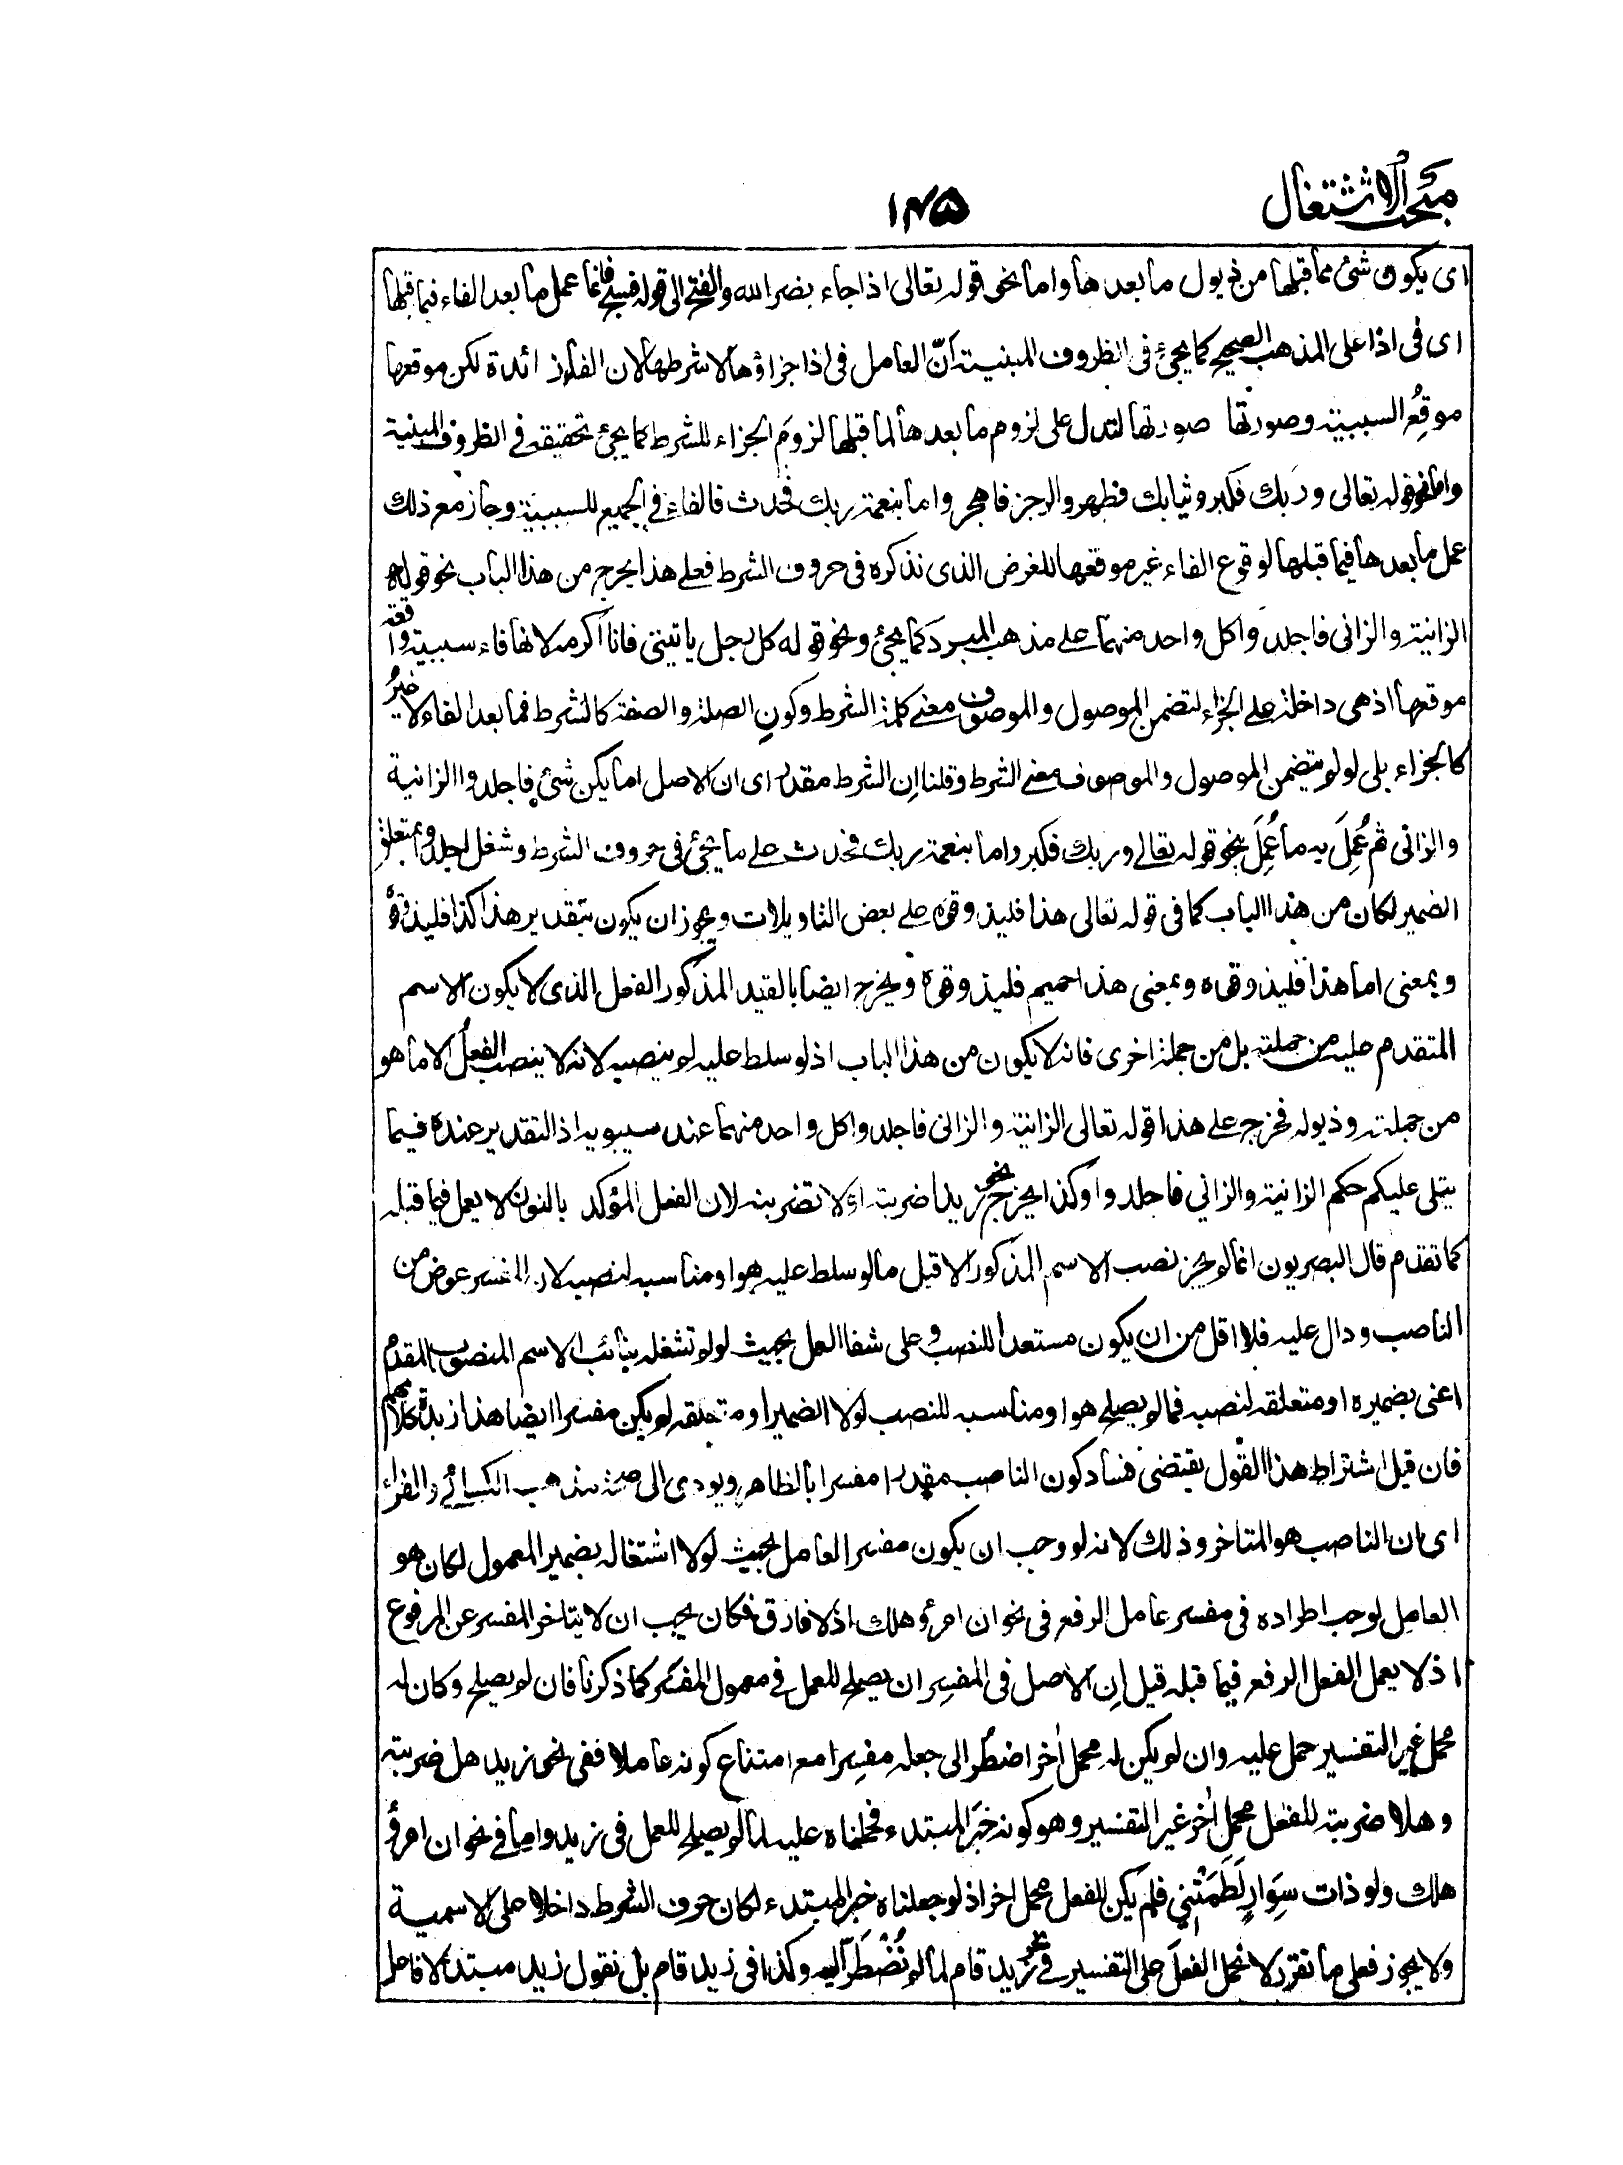 مبحث الاشتغال
١٤٥
اى يكون شئ مما قبلها من ذيول ما بعدها واما نحو قوله تعالى اذا جاء نصر الله والفتح الى قوله فسبح فانما عمل ما بعد الفاء فيما قبلها
اى فى اذا على المذهب الصحيح كما يجئ فى الظروف المبنية انّ العامل فى اذا جزاؤها لا شرطها لان الفاء زائدة لكن موقعها
موقعُ السببية وصورتها صورتها لتدل على لزوم ما بعدها لما قبلها لزومَ الجزاء للشرط كما يجئ تحقيقه فى الظروف المبنية
واما نحو قوله تعالى وربك فكبر وثيابك فطهر والرجز فاهجر واما بنعمة ربك فحدث فالفاء فى الجميع للسببية وجاز مع ذلك
عمل ما بعدها فيما قبلها لوقوع الفاء غير موقعها للغرض الذى نذكره فى حروف الشرط فعلى هذا يخرج من هذا الباب نحو قوله
الزانية والزانى فاجلدوا كل واحد منهما على مذهب المبرد كما يجئ ونحو قوله كل رجل ياتينى فانا اكرمه لانها فاء سببية واقعة
موقعها اذ هى داخلة على الجزاء لتضمن الموصول والموصوف معنى كلمة الشرط وكونِ الصلة والصفة كالشرط فما بعد الفاء لا خيرُ
كالجزاء بلى لو لم يتضمن الموصول والموصوف معنى الشرط وقلنا ان الشرط مقدر اى ان الاصل اما يكن شئ فاجلدوا الزانية
والزانى ثم عُمِلَ به ما عُمِلَ بنحو قوله تعالى وربك فكبر واما بنعمة ربك فحدث على ما يجئ فى حروف الشرط وشغل اجلدوا بمتعلق
الضمير لكان من هذا الباب كما فى قوله تعالى هذا فليذوقوه على بعض التاويلات ويجوز ان يكون بتقدير هذا كذا فليذوقوه
وبمعنى اما هذا فليذوقوه وبمعنى هذا حميم فليذوقوه ويخرج ايضا بالقيد المذكور الفعل الذى لا يكون الاسم
المتقدم عليه من جملته بل من جملة اخرى فانه لا يكون من هذا الباب اذ لو سلط عليه لم ينصبه لانه لا ينصب الفعلُ الا ما هو
من جملته وذيوله فخرج على هذا قوله تعالى الزانية والزانى فاجلدوا كل واحد منهما عند سيبويه اذ التقدير عنده فيما
يتلى عليكم حكم الزانية والزاني فاجلدوا وكذا يخرج نحو زيدا ضربته او لا تضربنه لان الفعل المؤكد بالنون لا يعمل فيما قبله
كما تقدم قال البصريون انما لم يجز نصب الاسم المذكور الا قبل ما لو سلط عليه هو او مناسبه لنصبه لان المفسر عوض من
الناصب ودال عليه فلا اقل من ان يكون مستعدا للنصب وعلى شفا العمل بحيث لو لم تشغله بنائب الاسم المنصوب المقدم
اعنى بضميره او متعلقه لنصبه فما لم يصلح هو او مناسبه للنصب لولا الضمير او متعلقه لم يكن مفسرا ايضا هذا زبدة كلامهم
فان قيل اشتراط هذا القول يقتضى فساد كون الناصب مقدرا مفسرا بالظاهر ويودى الى صحة مذهب الكسائى والفراء
اى ان الناصب هو المتاخر وذلك لانه لو وجب ان يكون مفسر العامل بحيث لولا اشتغاله بضمير المعمول لكان هو
العامِل لوجب اطراده فى مفسر عامل الرفع فى نحو ان امرؤ هلك اذ لا فارق فكان يجب ان لا يتاخر المفسر عن المرفوع
اذ لا يعمل الفعل الرفع فيما قبله قيل ان الاصل فى المفسِر ان يصلح للعمل فى معمول المفسَر كما ذكرنا فان لم يصلح وكان له
محمل غير التفسير حمل عليه وان لم يكن له محمل اٰخر اضطُر الى جعله مفسِرا مع امتناع كونه عاملا ففى نحو زيد هل ضربته
وهلا ضربته للفعل محمل اٰخر غير التفسير وهو كونه خبَر المبتدء فحملناه عليه لما لم يصلح للعمل فى زيد واما فى نحو ان امرؤ
هلك ولو ذات سِوَارٍ لَطَمَتْنِي فلم يكن للفعل محمل اخر اذ لو جعلناه خبر المبتدء لكان حرف الشرط داخلا على الاسمية
ولا يجوز فعلى ما تقرر لا نحمل الفعلَ على التفسير فى نحو زيد قام لما لم نُضْطَرّ اليه وكذا فى زيد قام بل نقول زيد مبتدء لا فاعل